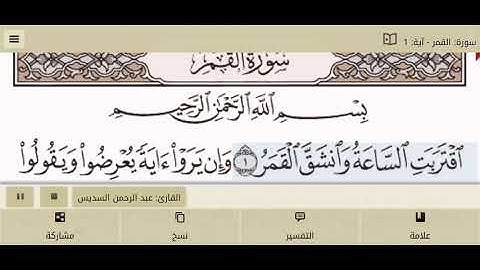 سورة: القمر - آية: 1
سُورَةُ القَمَرِ
بِسْمِ اللَّهِ الرَّحْمَٰنِ الرَّحِيمِ
اقْتَرَبَتِ السَّاعَةُ وَانشَقَّ الْقَمَرُ ۝١ وَإِن يَرَوْا ءَايَةً يُعْرِضُوا وَيَقُولُوا
القارئ: عبد الرحمن السديس
علامة
التفسير
نسخ
مشاركة